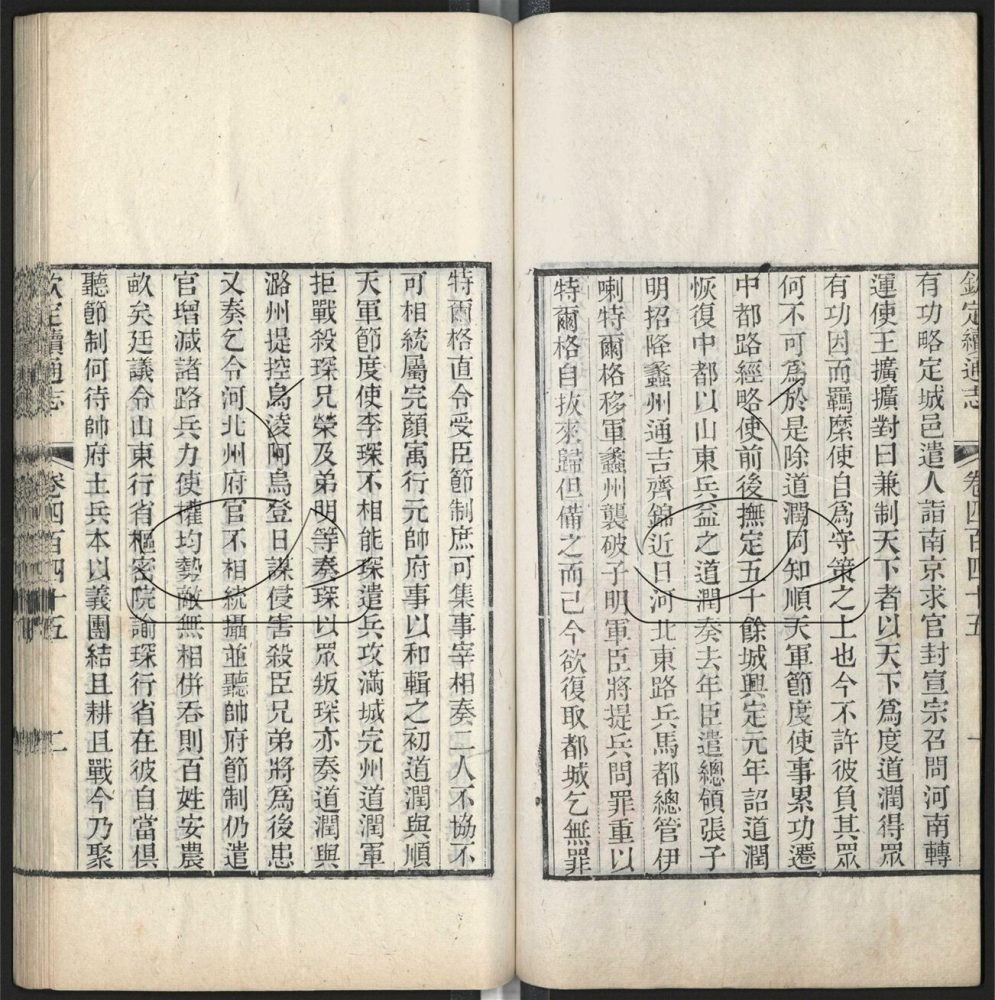 欽定續通志 卷四百四十五 一
有功略定城邑遣人詣南京求官封宣宗召問河南轉
運使王擴擴對曰兼制天下者以天下爲度道潤得眾
有功因而羈縻使自爲守策之上也今不許彼負其眾
何不可爲於是除道潤同知順天軍節度使事累功遷
中都路經略使前後撫定五十餘城興定元年詔道潤
恢復中都以山東兵益之道潤奏去年臣遣總領張子
明招降蠡州通吉齊錦近日河北東路兵馬都總管伊
喇特爾格移軍蠡州襲破子明軍臣將提兵問罪重以
特爾格自拔來歸但備之而已今欲復取都城乞無罪
特爾格直令受臣節制庶可集事宰相奏二人不協不
可相統屬完顏寓行元帥府事以和輯之初道潤與順
天軍節度使李琛不相能琛遣兵攻滿城完州道潤軍
拒戰殺琛兄榮及弟明等奏琛以眾叛琛亦奏道潤與
潞州提控烏淩阿烏登日謀侵害殺臣兄弟將爲後患
又奏乞令河北州府官不相統攝並聽帥府節制仍遣
官增減諸路兵力使權均勢敵無相併吞則百姓安農
畝矣廷議令山東行省樞密院諭琛行省在彼自當俱
聽節制何待帥府士兵本以義團結且耕且戰今乃聚
欽定續通志 卷四百四十五 二